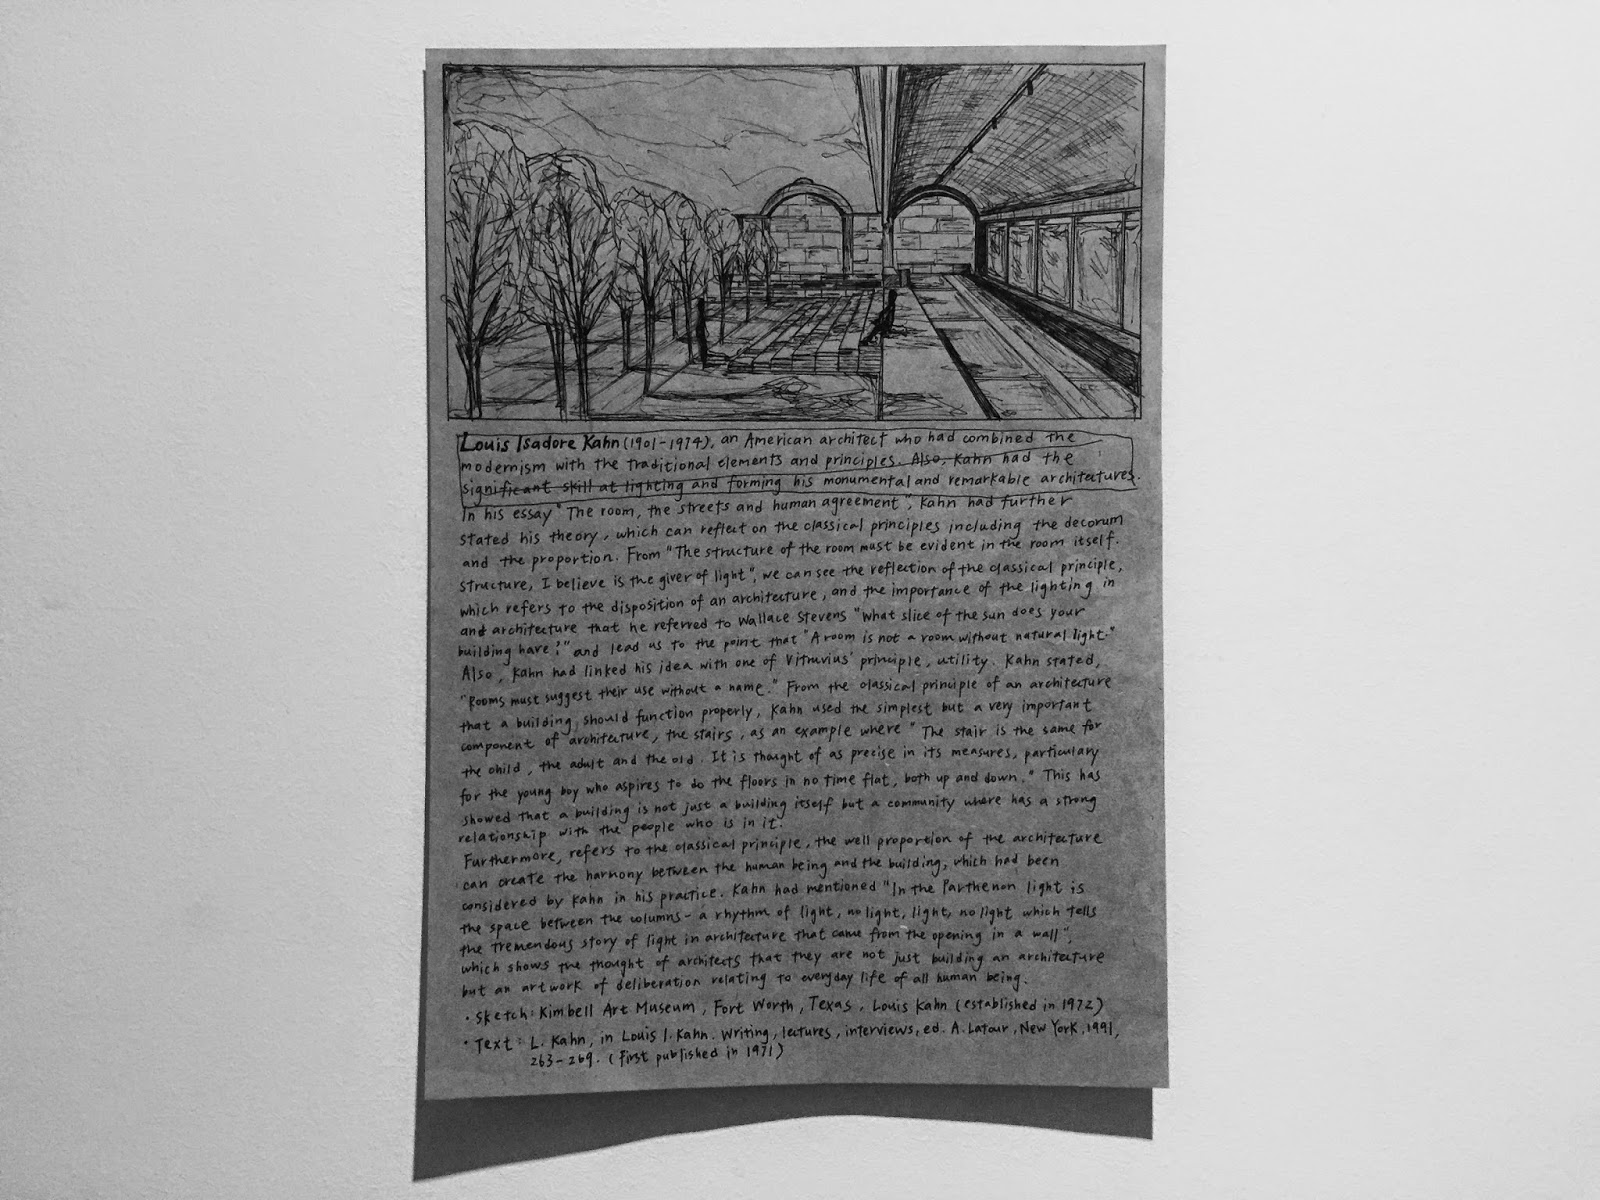 Louis Isadore Kahn (1901-1974), an American architect who had combined the
modernism with the traditional elements and principles. Also, Kahn had the
significant skill at lighting and forming his monumental and remarkable architectures.
In his essay "The room, the streets and human agreement", Kahn had further
stated his theory, which can reflect on the classical principles including the decorum
and the proportion. From "The structure of the room must be evident in the room itself.
Structure, I believe is the giver of light", we can see the reflection of the classical principle,
which refers to the disposition of an architecture, and the importance of the lighting in
and architecture that he referred to Wallace Stevens "what slice of the sun does your
building have?" and lead us to the point that "A room is not a room without natural light."
Also, Kahn had linked his idea with one of Vitruvius' principle, utility. Kahn stated,
"Rooms must suggest their use without a name." From the classical principle of an architecture
that a building should function properly, Kahn used the simplest but a very important
component of architecture, the stairs, as an example where "The stair is the same for
the child, the adult and the old. It is thought of as precise in its measures, particulary
for the young boy who aspires to do the floors in no time flat, both up and down." This has
showed that a building is not just a building itself but a community where has a strong
relationship with the people who is in it.
Furthermore, refers to the classical principle, the well proportion of the architecture
can create the harmony between the human being and the building, which had been
considered by Kahn in his practice. Kahn had mentioned "In the Parthenon light is
the space between the columns - a rhythm of light, no light, light, no light which tells
the tremendous story of light in architecture that came from the opening in a wall",
which shows the thought of architects that they are not just building an architecture
but an artwork of deliberation relating to everyday life of all human being.
• Sketch: Kimbell Art Museum, Fort Worth, Texas, Louis Kahn (established in 1972)
• Text: L. Kahn, in Louis I. Kahn. Writing, lectures, interviews, ed. A. Latour, New York, 1991,
263-269. (First published in 1971)